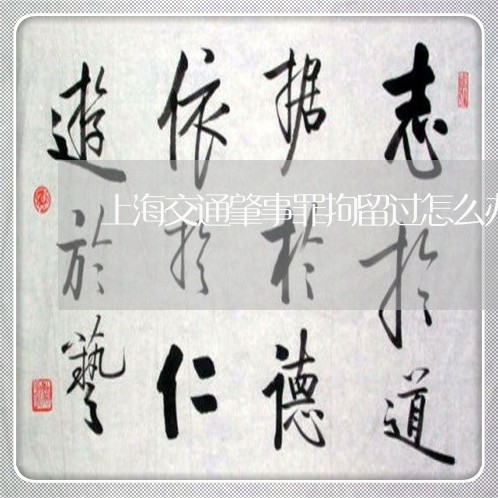 志於道
据於德
依於仁
遊於藝
上海交通肇事罪拘留过怎么办